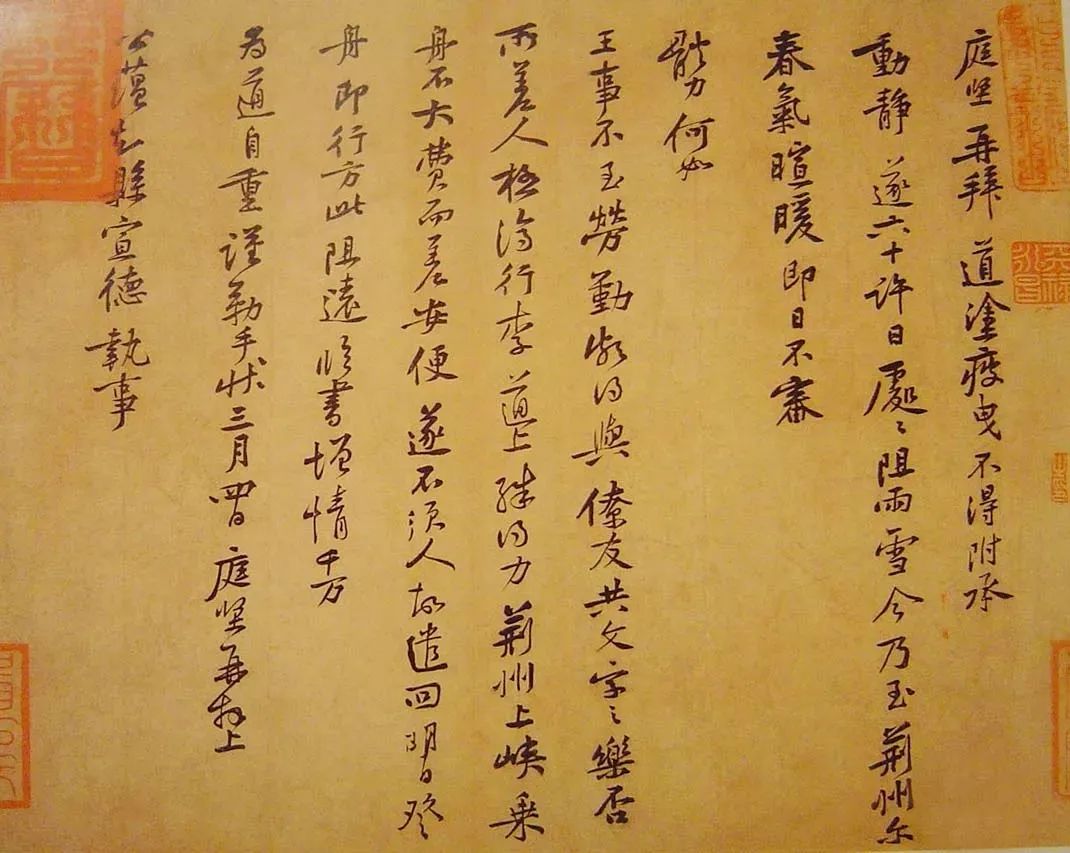 庭坚再拜道塗疲曳不得附承
動静遂六十許日處々阻雨雪今乃至荆州尔
春氣暄暖即日不審
體力何如
王事不至勞勤頗得與僚友共文字之樂否
所差人極濟行李道上殊得力荆州上峡乗
舟不大費而差安便遂不須人故遣回明日登
舟即行方此阻遠臨書增情千万
為道自重謹勒手狀三月四日庭坚再拜上
公蕴知縣宣德執事